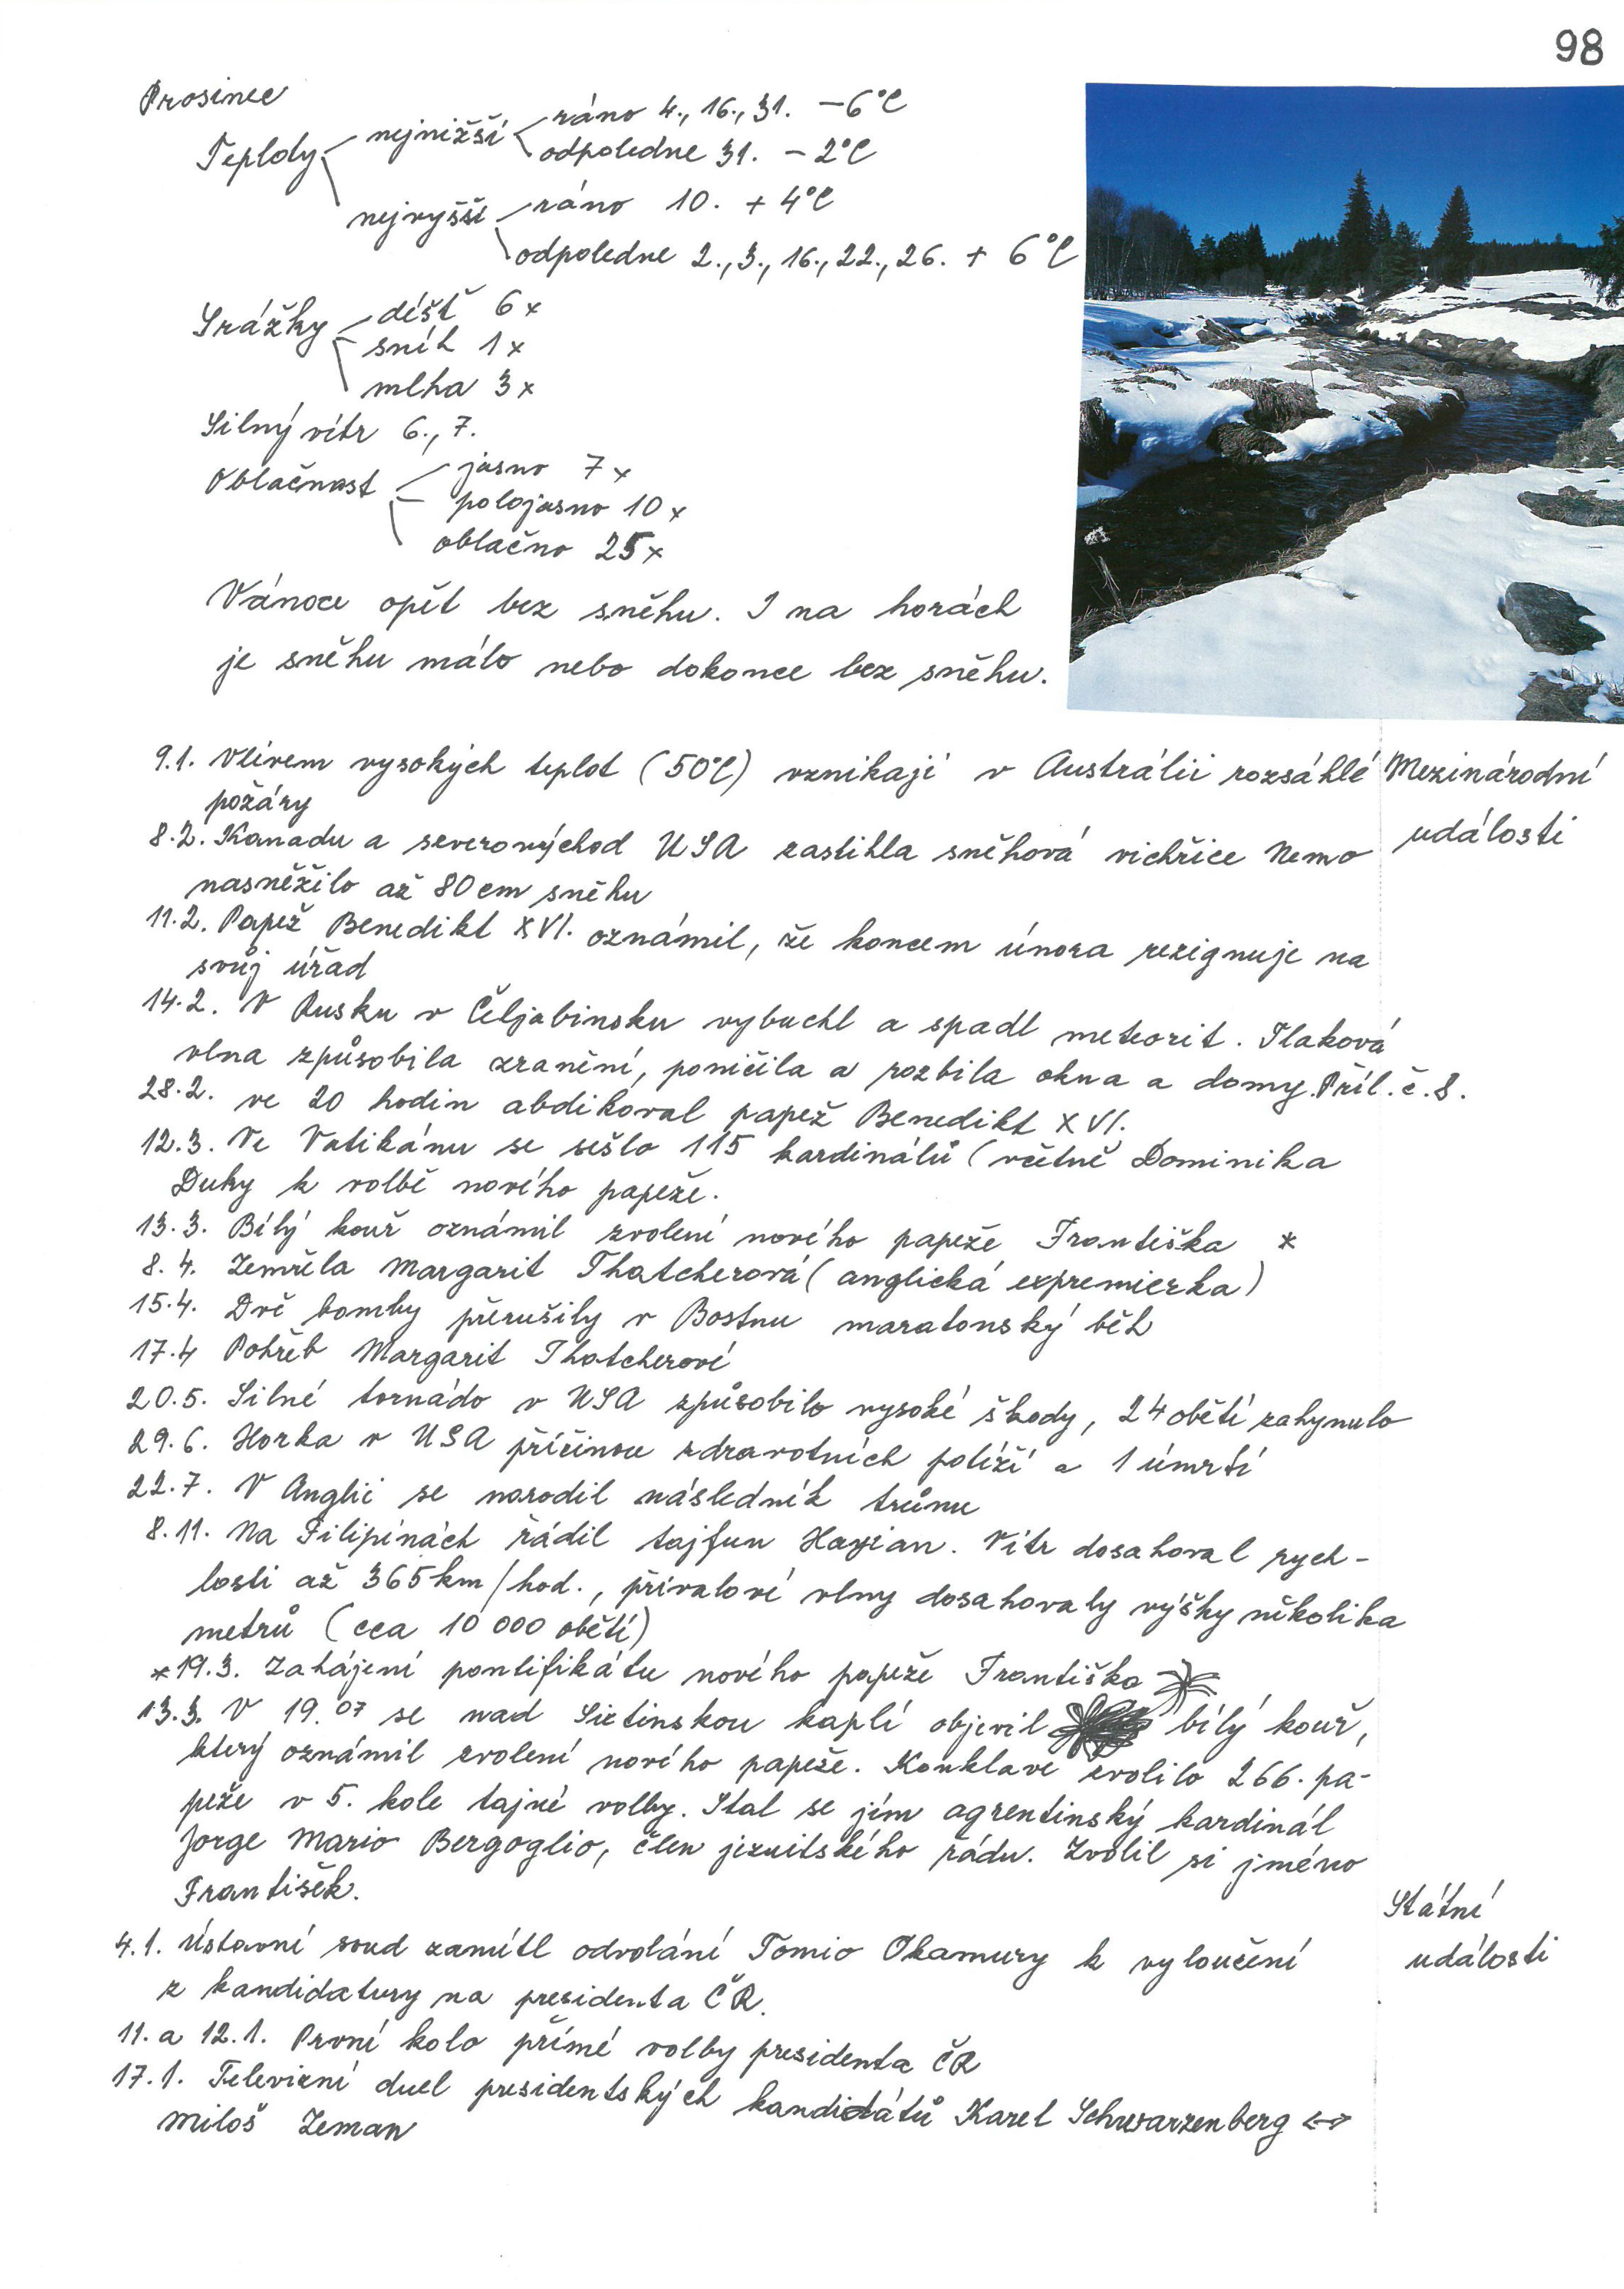 98
Prosinec
Teploty nejnižší ráno 4., 16., 31. -6°C
odpoledne 31. -2°C
nejvyšší ráno 10. +4°C
odpoledne 2., 3., 16., 22., 26. + 6°C
Srážky déšť 6x
sníh 1x
mlha 3x
Silný vítr 6., 7.
Oblačnost jasno 7x
polojasno 10x
oblačno 25x
Vánoce opět bez sněhu. I na horách
je sněhu málo nebo dokonce bez sněhu.
Mezinárodní
události
9.1. Vlivem vysokých teplot (50°C) vznikají v Austrálii rozsáhlé
požáry
8.2. Kanadu a severovýchod USA zastihla sněhová vichřice Nemo
nasněžilo až 80 cm sněhu
11.2. Papež Benedikt XVI. oznámil, že koncem února rezignuje na
svůj úřad
14.2. V Rusku v Čeljabinsku vybuchl a spadl meteorit. Tlaková
vlna způsobila zranění, poničila a rozbila okna a domy. Příl. č. 8.
28.2. ve 20 hodin abdikoval papež Benedikt XVI.
12.3. Ve Vatikánu se sešlo 115 kardinálů (včetně Dominika
Duky k volbě nového papeže.
13.3. Bílý kouř oznámil zvolení nového papeže Františka *
8.4. Zemřela Margarit Thatcherová (anglická expremierka)
15.4. Dvě bomby přerušily v Bostnu maratonský běh
17.4 Pohřeb Margarit Thatcherové
20.5. Silné tornádo v USA způsobilo vysoké škody, 24 obětí zahynulo
29.6. Horka v USA příčinou zdravotních potíží a 1 úmrtí
22.7. V Anglii se narodil následník trůnu
8.11. Na Filipínách řádil tajfun Hayian. Vítr dosahoval rych-
losti až 365 km/hod., přívalové vlny dosahovaly výšky několika
metrů (cca 10 000 obětí)
*19.3. Zahájení pontifikátu nového papeže Františka
13.3. V 19.07 se nad Sixtinskou kaplí objevil bílý kouř,
který oznámil zvolení nového papeže. Konkláve zvolilo 266. pa-
peže v 5. kole tajné volby. Stal se jím agrentinský kardinál
Jorge Mario Bergoglio, člen jezuitského řádu. Zvolil si jméno
František.
Státní
události
4.1. Ústavní soud zamítl odvolání Tomio Okamury k vyloučení
z kandidatury na presidenta ČR.
11. a 12.1. První kolo přímé volby presidenta ČR
17.1. Televizní duel presidentských kandidátů Karel Schwarzenberg <->
Miloš Zeman